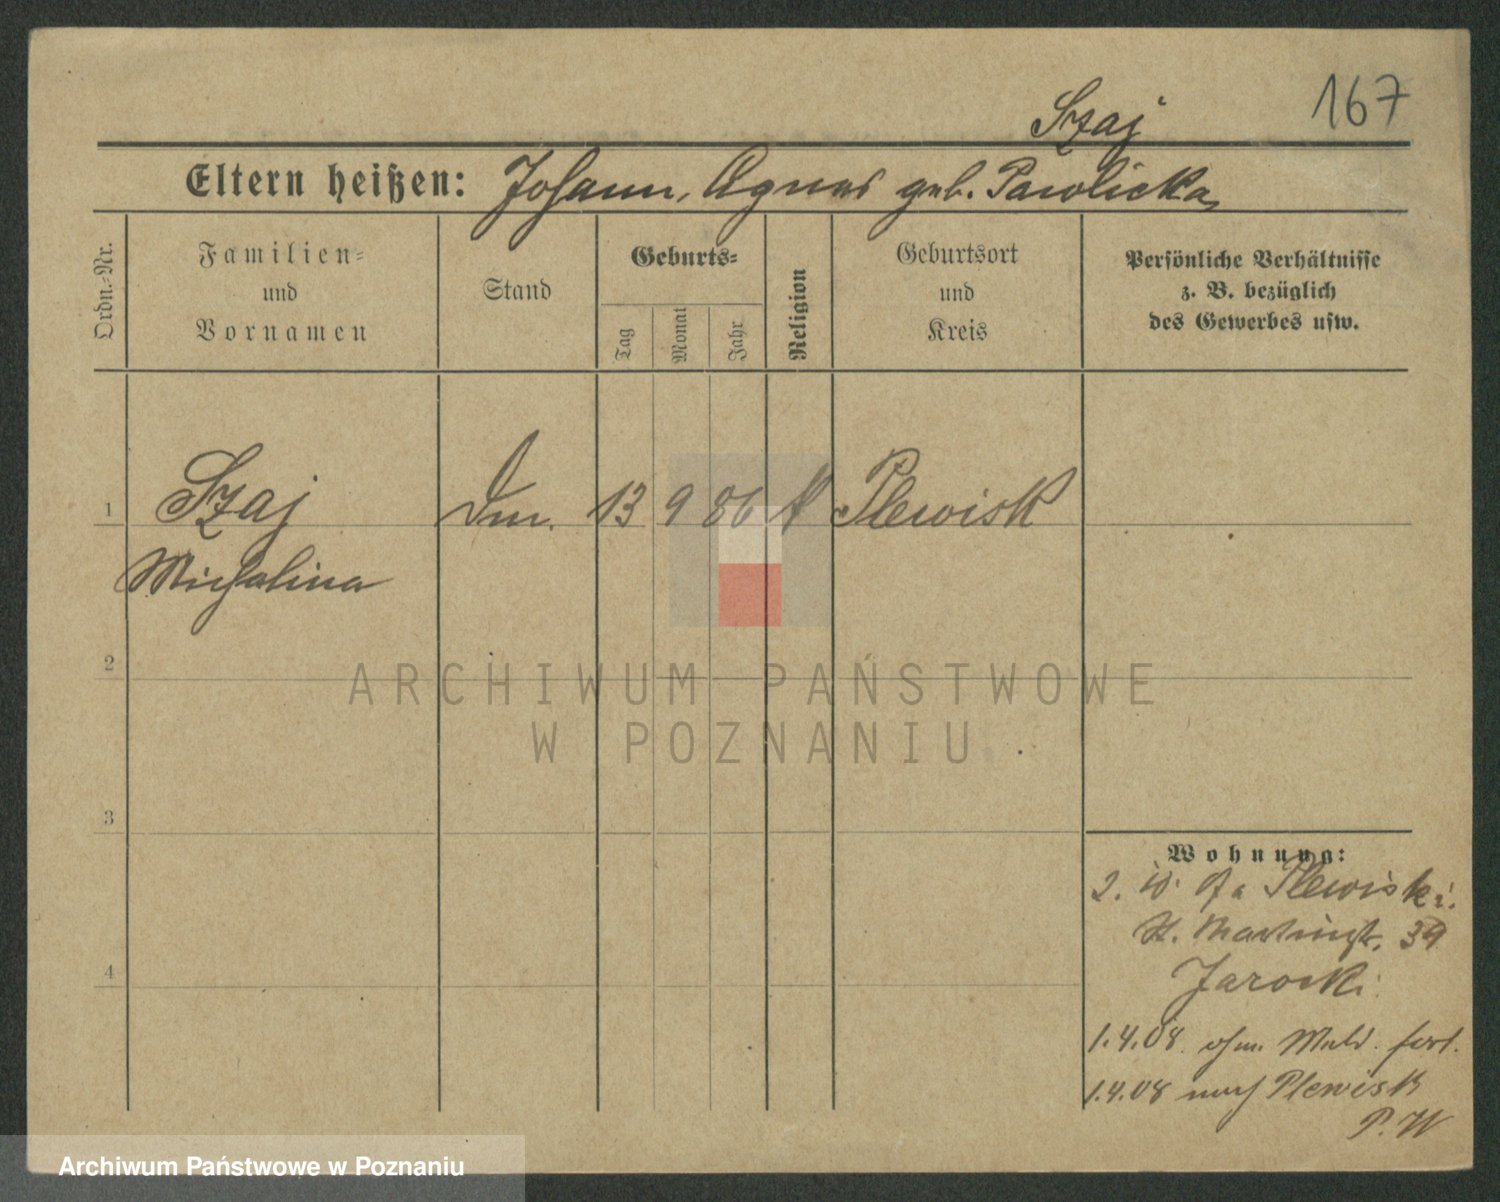 167
Szaj
Eltern heißen: Johann, Agnes geb. Pawlicka
Ordn.-Nr.
Familien-
und
Vornamen
Stand
Geburts-
Tag
Monat
Jahr
Religion
Geburtsort
und
Kreis
Persönliche Verhältnisse
z. B. bezüglich
des Gewerbes usw.
1 Szaj Dm. 13 9 86 k Plewisk
Michalina
2
3
4
Wohnung:
2. Plewisk
St. Martinstr. 39
Jarocki
1.4.08. ohne Meld. fort.
1.4.08 nach Plewisk
P. W
ARCHIWUM PAŃSTWOWE
W POZNANIU
Archiwum Państwowe w Poznaniu